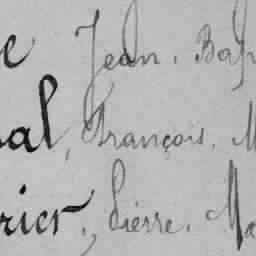 e Jean. Bap
al, François. M
rier, Pierre. Ma